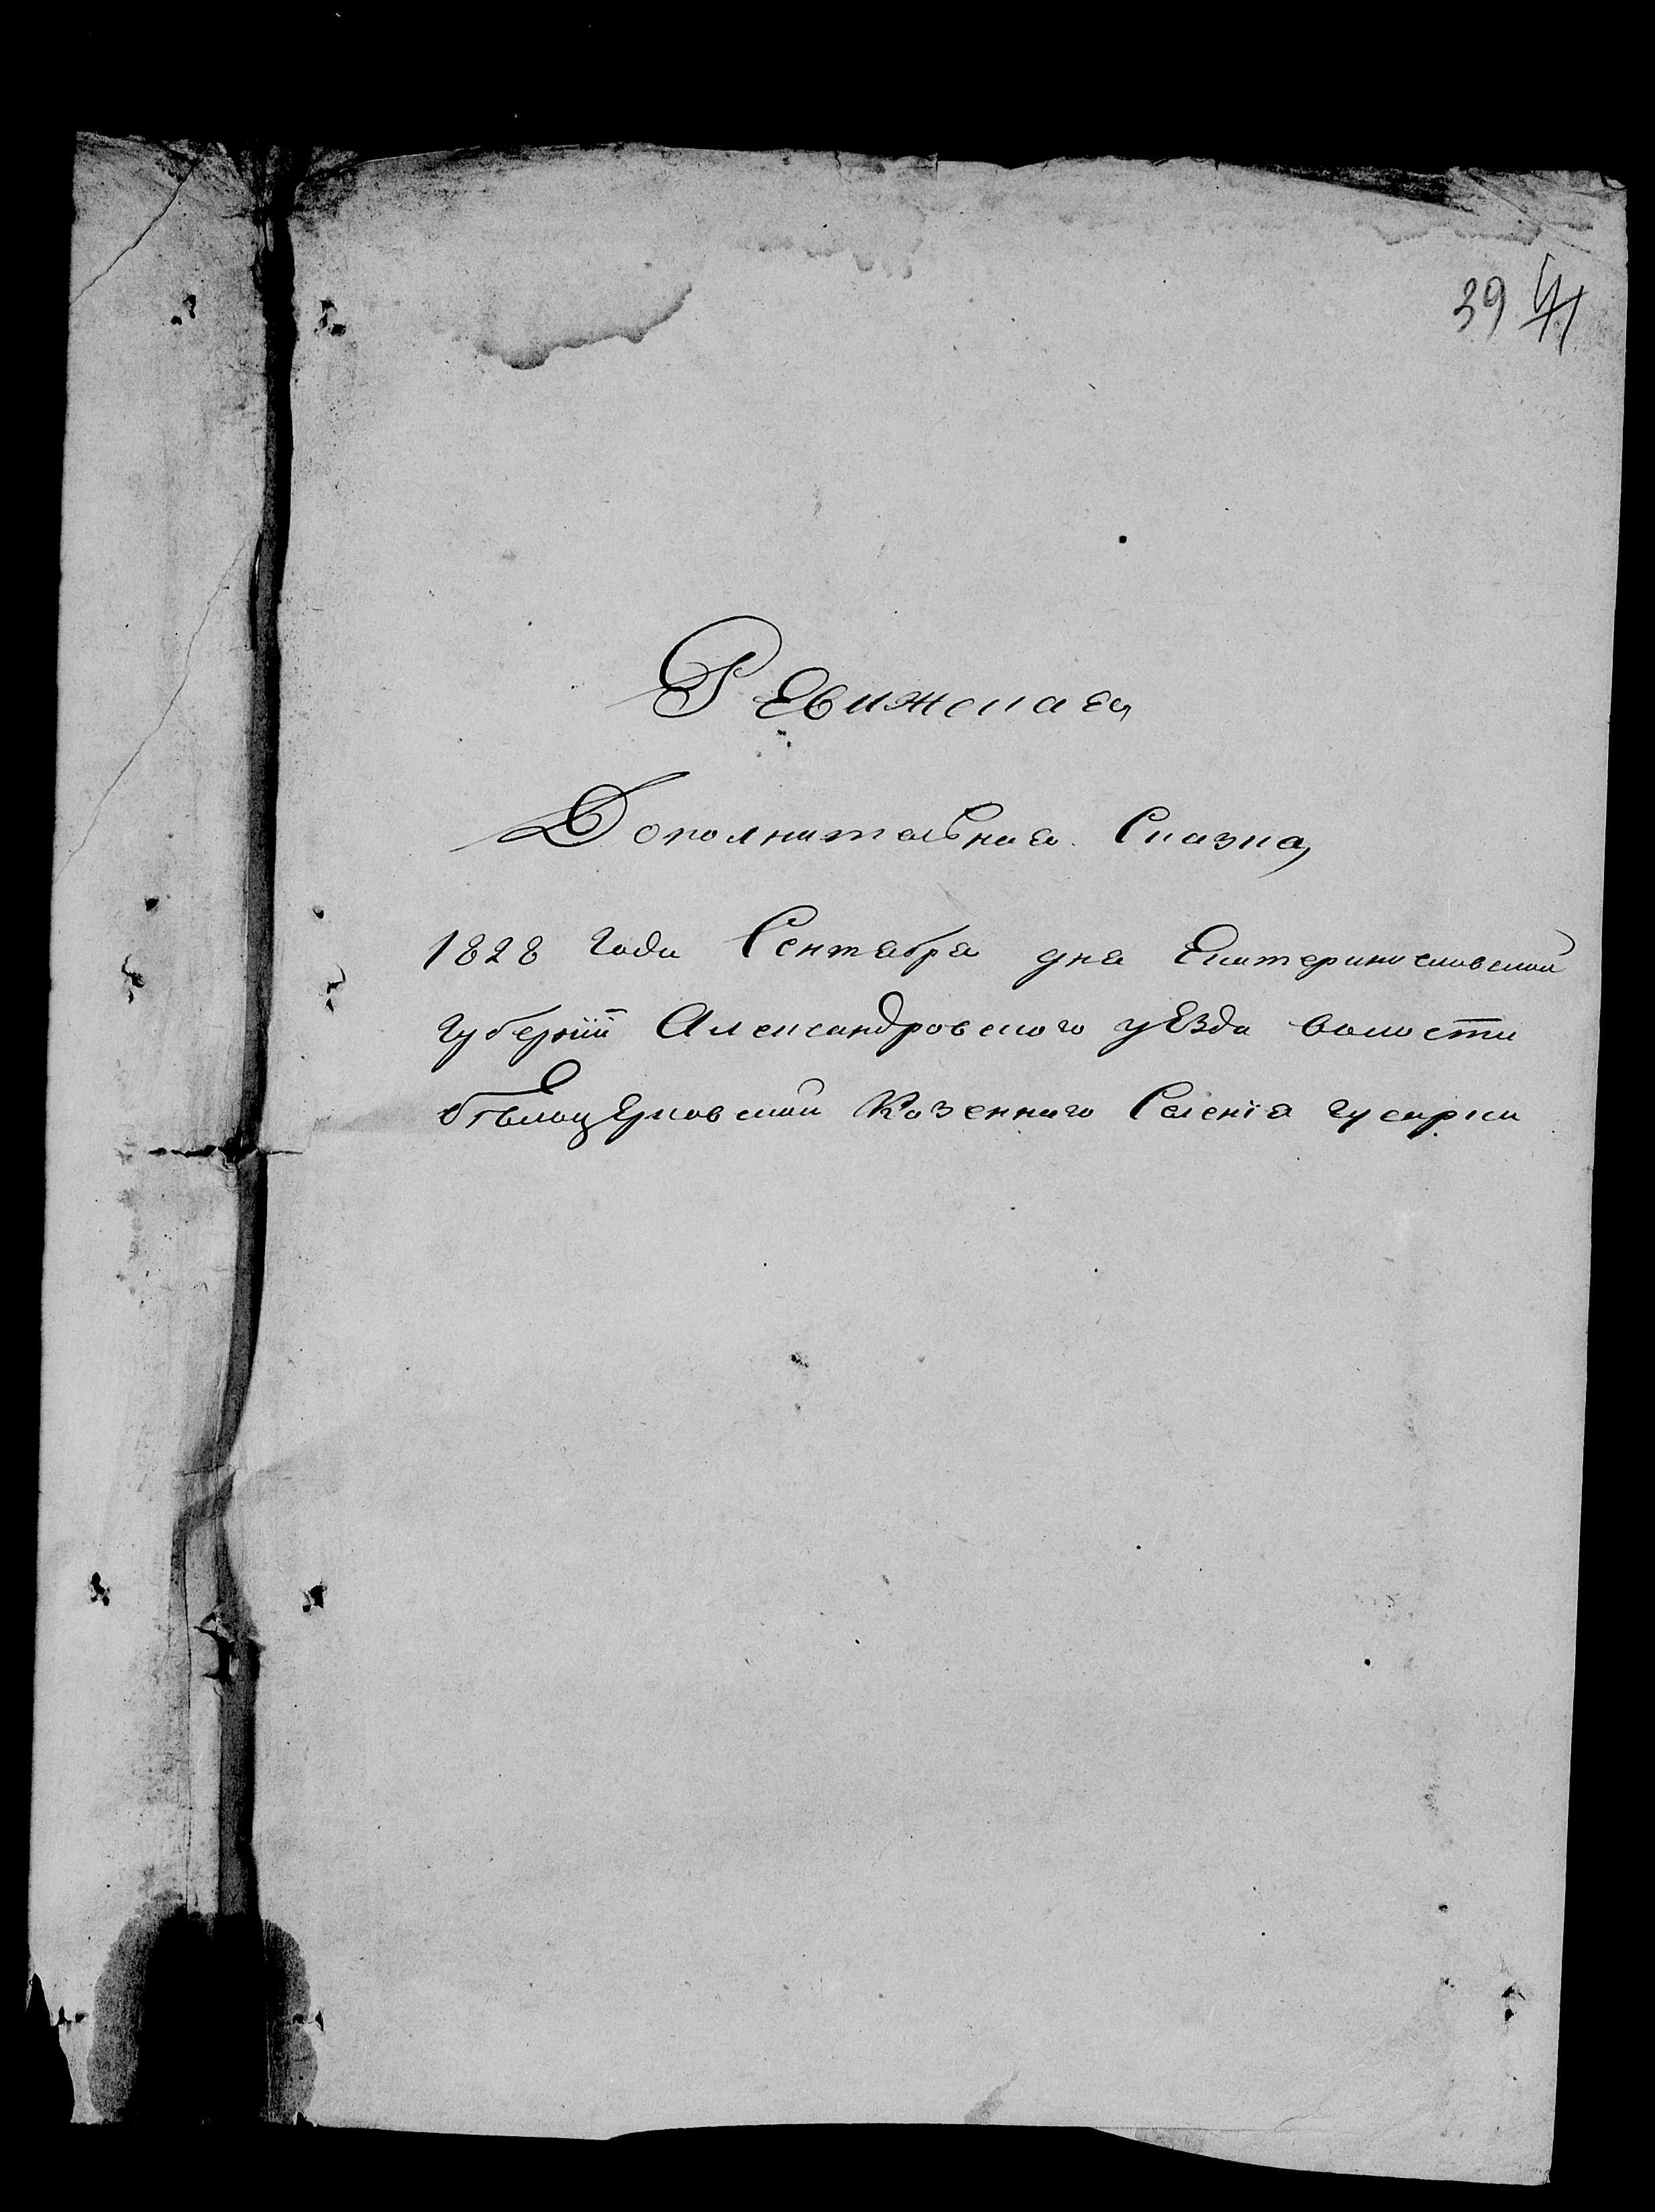 39 41
Ревижская
Дополнительная Сказка
1828 Года Сентабра дна Екатеринославской
губернїи Александровского уезда волости
бѣлоцерковской Казенного Селенїа гусарки